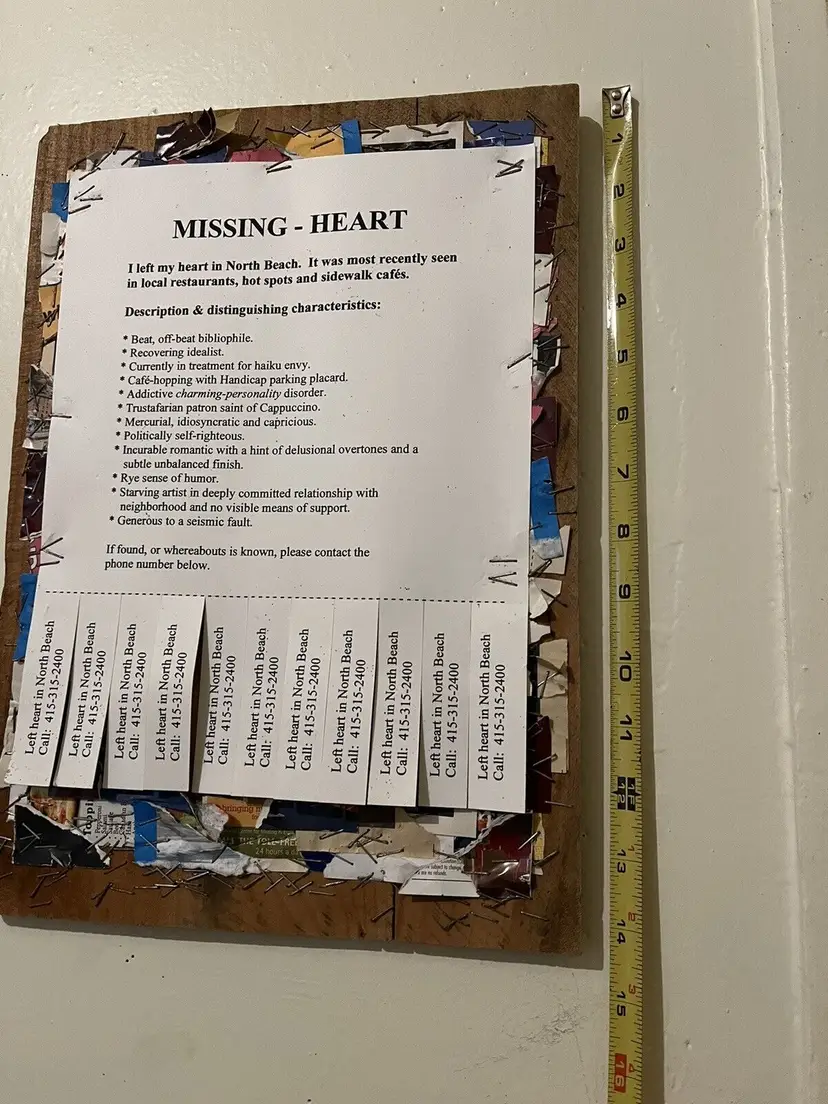 MISSING - HEART
I left my heart in North Beach. It was most recently seen
in local restaurants, hot spots and sidewalk cafés.
Description & distinguishing characteristics:
* Beat, off-beat bibliophile.
* Recovering idealist.
* Currently in treatment for haiku envy.
* Café-hopping with Handicap parking placard.
* Addictive charming-personality disorder.
* Trustafarian patron saint of Cappuccino.
* Mercurial, idiosyncratic and capricious.
* Politically self-righteous.
* Incurable romantic with a hint of delusional overtones and a
subtle unbalanced finish.
* Rye sense of humor.
* Starving artist in deeply committed relationship with
neighborhood and no visible means of support.
* Generous to a seismic fault.
If found, or whereabouts is known, please contact the
phone number below.
Left heart in North Beach
Call: 415-315-2400
Left heart in North Beach
Call: 415-315-2400
Left heart in North Beach
Call: 415-315-2400
Left heart in North Beach
Call: 415-315-2400
Left heart in North Beach
Call: 415-315-2400
Left heart in North Beach
Call: 415-315-2400
Left heart in North Beach
Call: 415-315-2400
Left heart in North Beach
Call: 415-315-2400
Left heart in North Beach
Call: 415-315-2400
Left heart in North Beach
Call: 415-315-2400
Left heart in North Beach
Call: 415-315-2400
bringing
THE TOLL-FREE
24 hours a
are no refunds.
1
2
3
4
5
6
7
8
9
10
11
12 1F
13 1
14 2
15 3
16 4